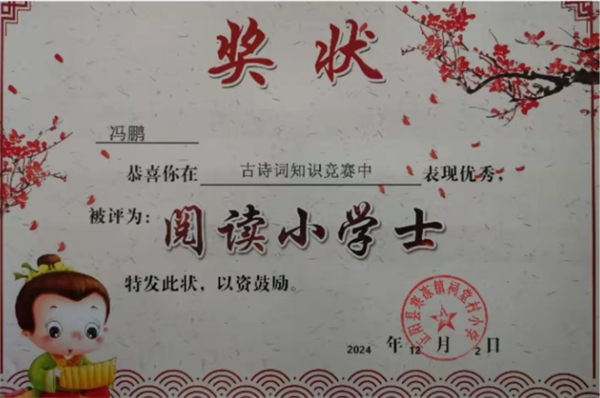 奖状
冯鹏
恭喜你在古诗词知识竞赛中表现优秀，
被评为：阅读小学士
特发此状，以资鼓励。
2024年12月2日